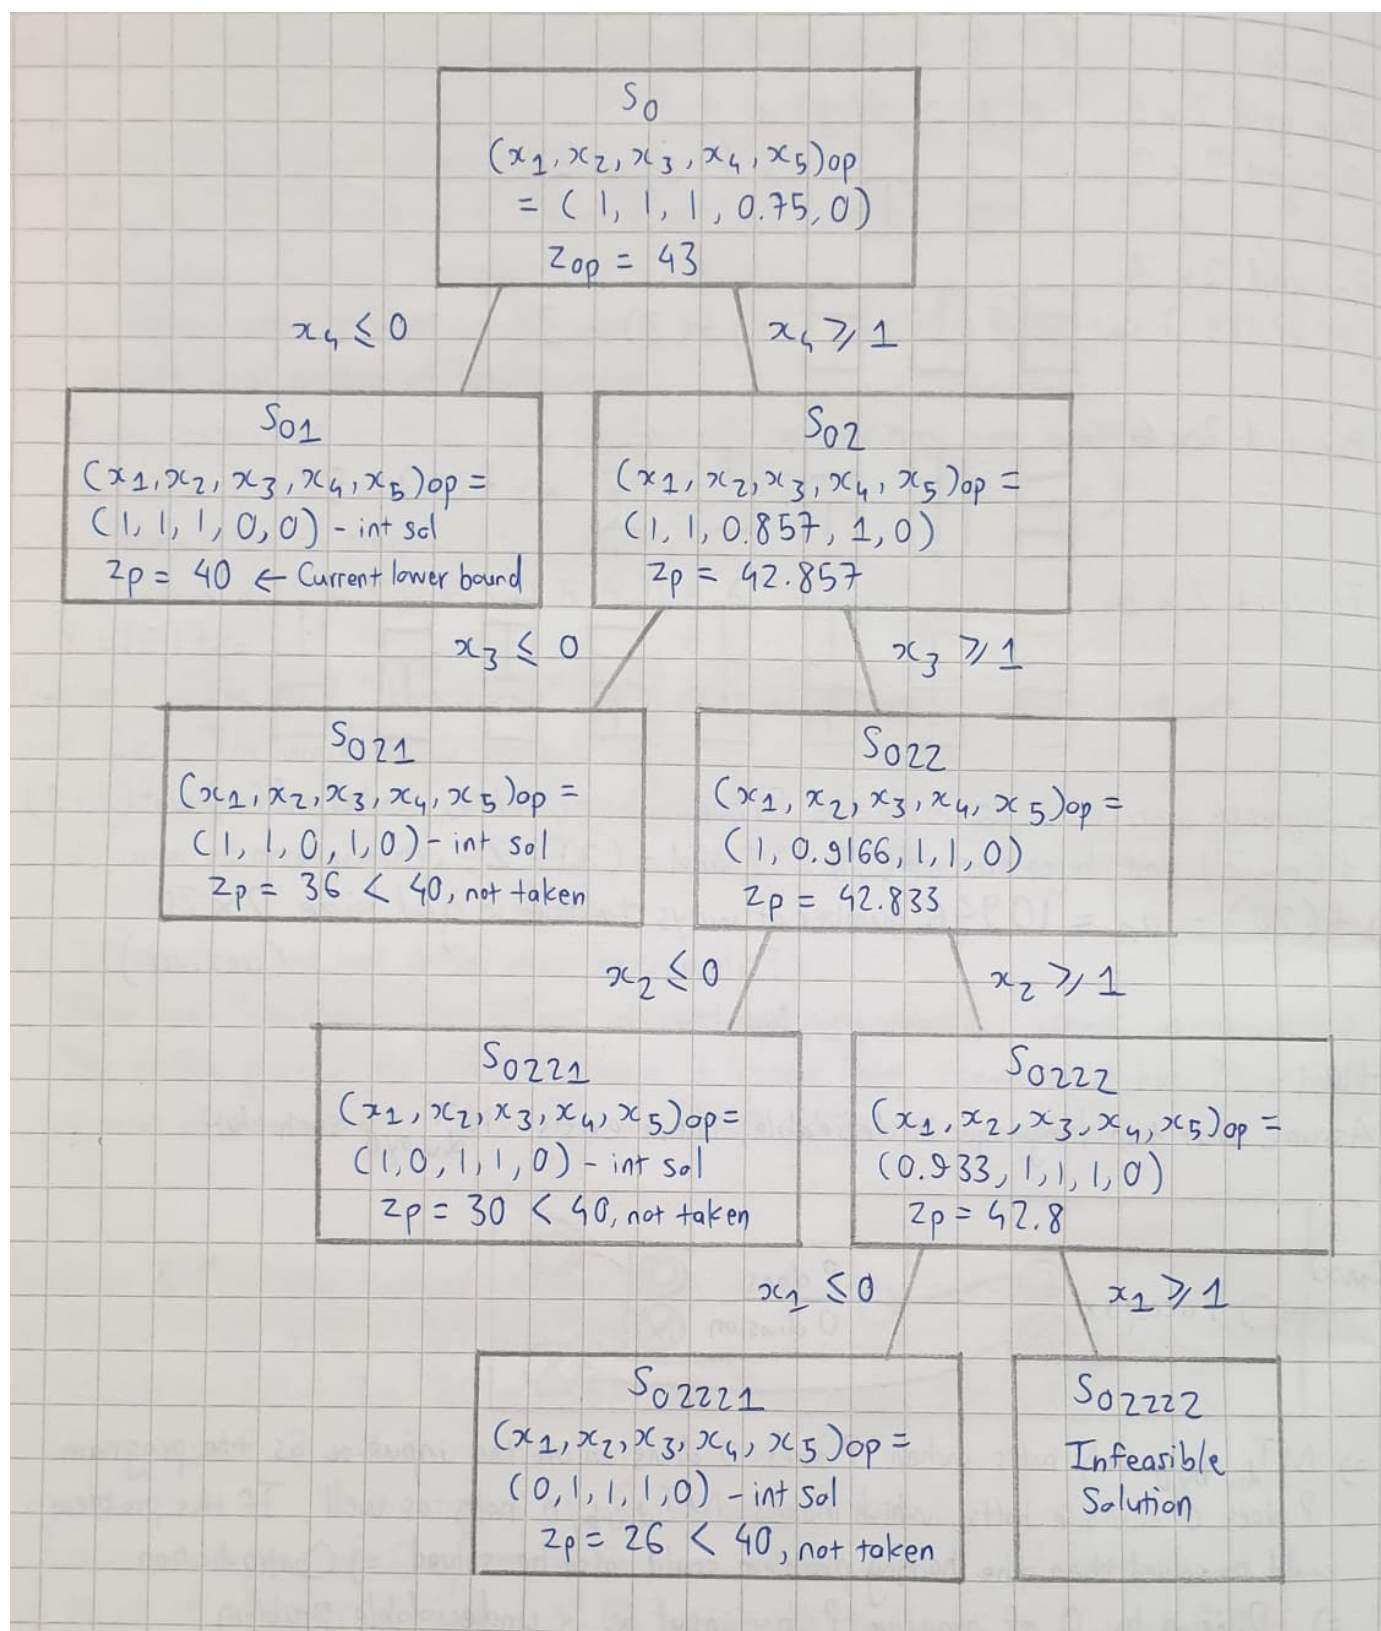 S0
(x1, x2, x3, x4, x5)op
= (1, 1, 1, 0.75, 0)
zop = 43
x4 ≤ 0
x4 ⩾ 1
S01
(x1, x2, x3, x4, x5)op =
(1, 1, 1, 0, 0) - int sol
zp = 40 ← Current lower bound
S02
(x1, x2, x3, x4, x5)op =
(1, 1, 0.857, 1, 0)
zp = 42.857
x3 ≤ 0
x3 ⩾ 1
S021
(x1, x2, x3, x4, x5)op =
(1, 1, 0, 1, 0) - int sol
zp = 36 < 40, not taken
S022
(x1, x2, x3, x4, x5)op =
(1, 0.9166, 1, 1, 0)
zp = 42.833
x2 ≤ 0
x2 ⩾ 1
S0221
(x1, x2, x3, x4, x5)op =
(1, 0, 1, 1, 0) - int sol
zp = 30 < 40, not taken
S0222
(x1, x2, x3, x4, x5)op =
(0.933, 1, 1, 1, 0)
zp = 42.8
x1 ≤ 0
x1 ⩾ 1
S02221
(x1, x2, x3, x4, x5)op =
(0, 1, 1, 1, 0) - int sol
zp = 26 < 40, not taken
S02222
Infeasible
Solution